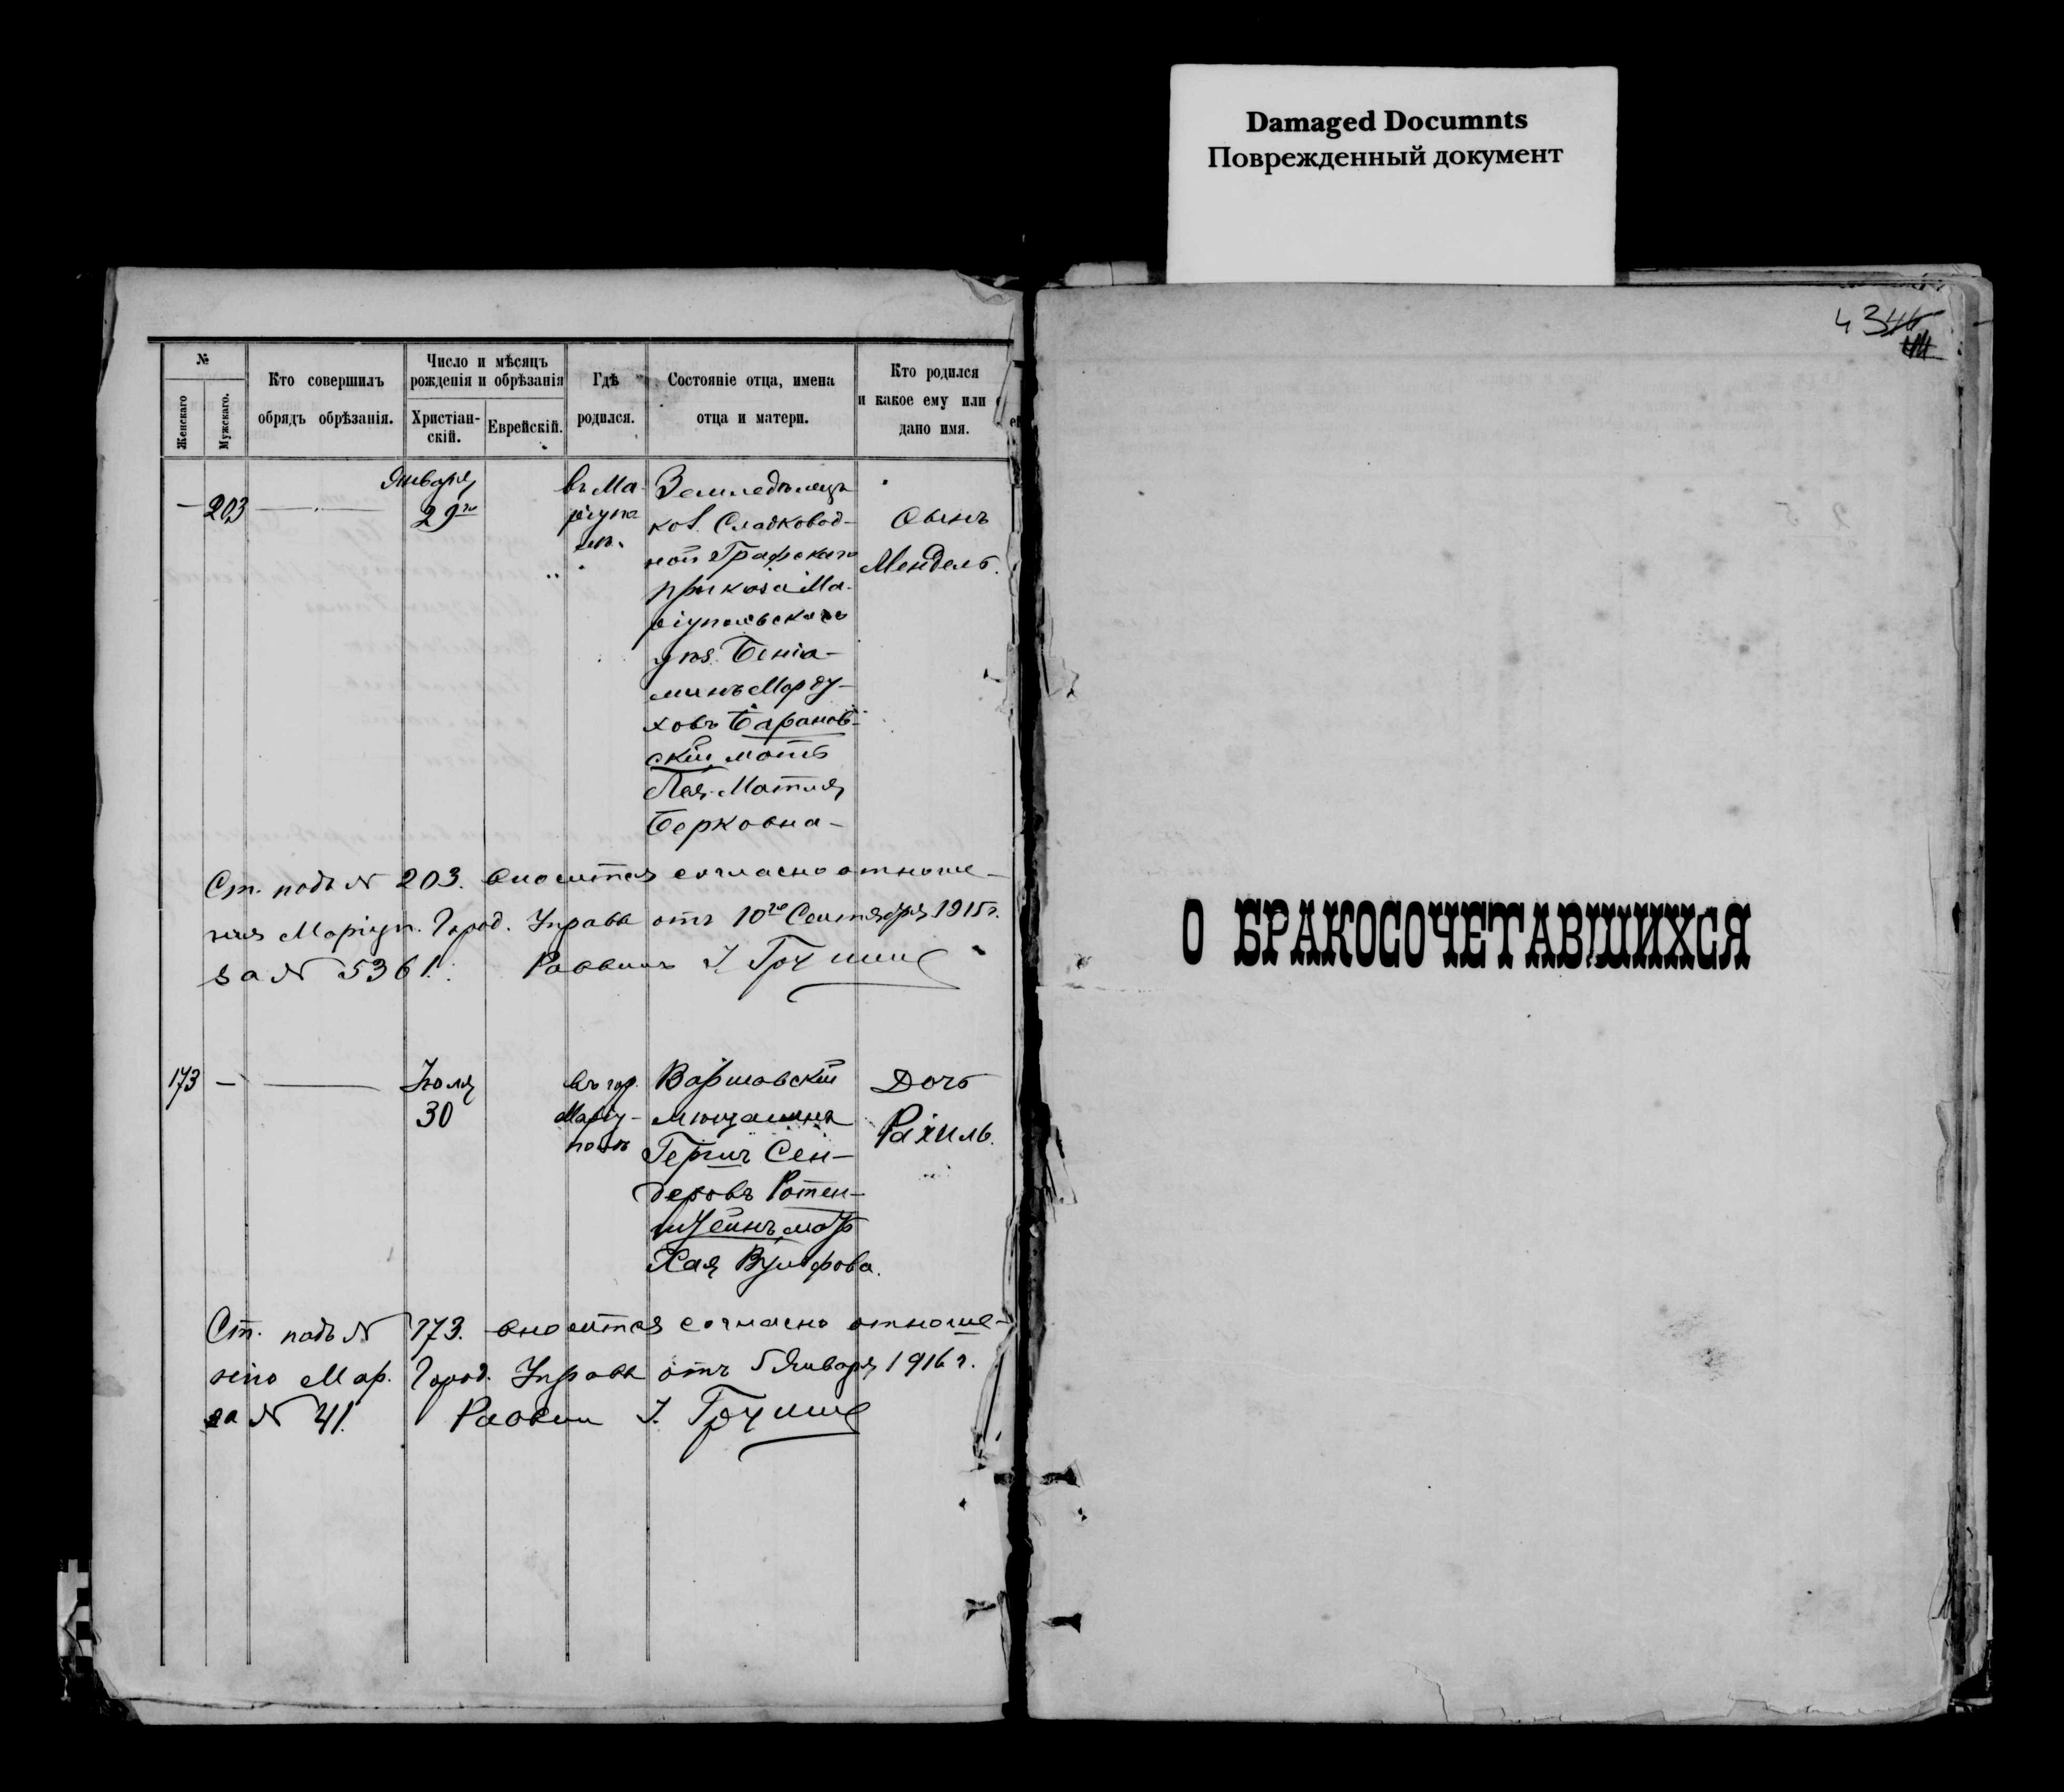 Damaged Documnts
Поврежденный документ
43
44
№
Женскаго
Мужскаго.
Кто совершилъ
обрядъ обрѣзанія.
Число и мѣсяцъ
рожденія и обрѣзанія
Христіан-
скій.
Еврейскій.
Гдѣ
родился.
Состояніе отца, имена
отца и матери.
Кто родился
и какое ему или
дано имя.
— 203 —
Января
29го
въ Ма-
ріупо-
лѣ.
Земледѣлецъ
кол. Сладковод-
ной Графскаго
приказа Ма-
ріупольскаго
уѣз. Беніа-
минъ Морду-
ховъ Баранов-
скій, мать
Лея-Матля
Берковна-
Сынъ
Мендель.
Ст. подъ № 203. вносится согласно отноше-
нія Маріуп. Город. Управы отъ 10го Сентября 1915 г.
за № 5361. Раввинъ
173 — —
Іюля
30
въ гор.
Маріу-
полѣ
Варшавскій
мѣщанинъ
Гершъ Сен-
деровъ Ротен-
штейнъ, мать
Хая Вульфова.
Дочь
Рахиль.
Ст. подъ № 173. вносится согласно отноше-
нію Мар. Город. Управы отъ 5 Января 1916 г.
за № 41. Раввинъ
О БРАКОСОЧЕТАВШИХСЯ